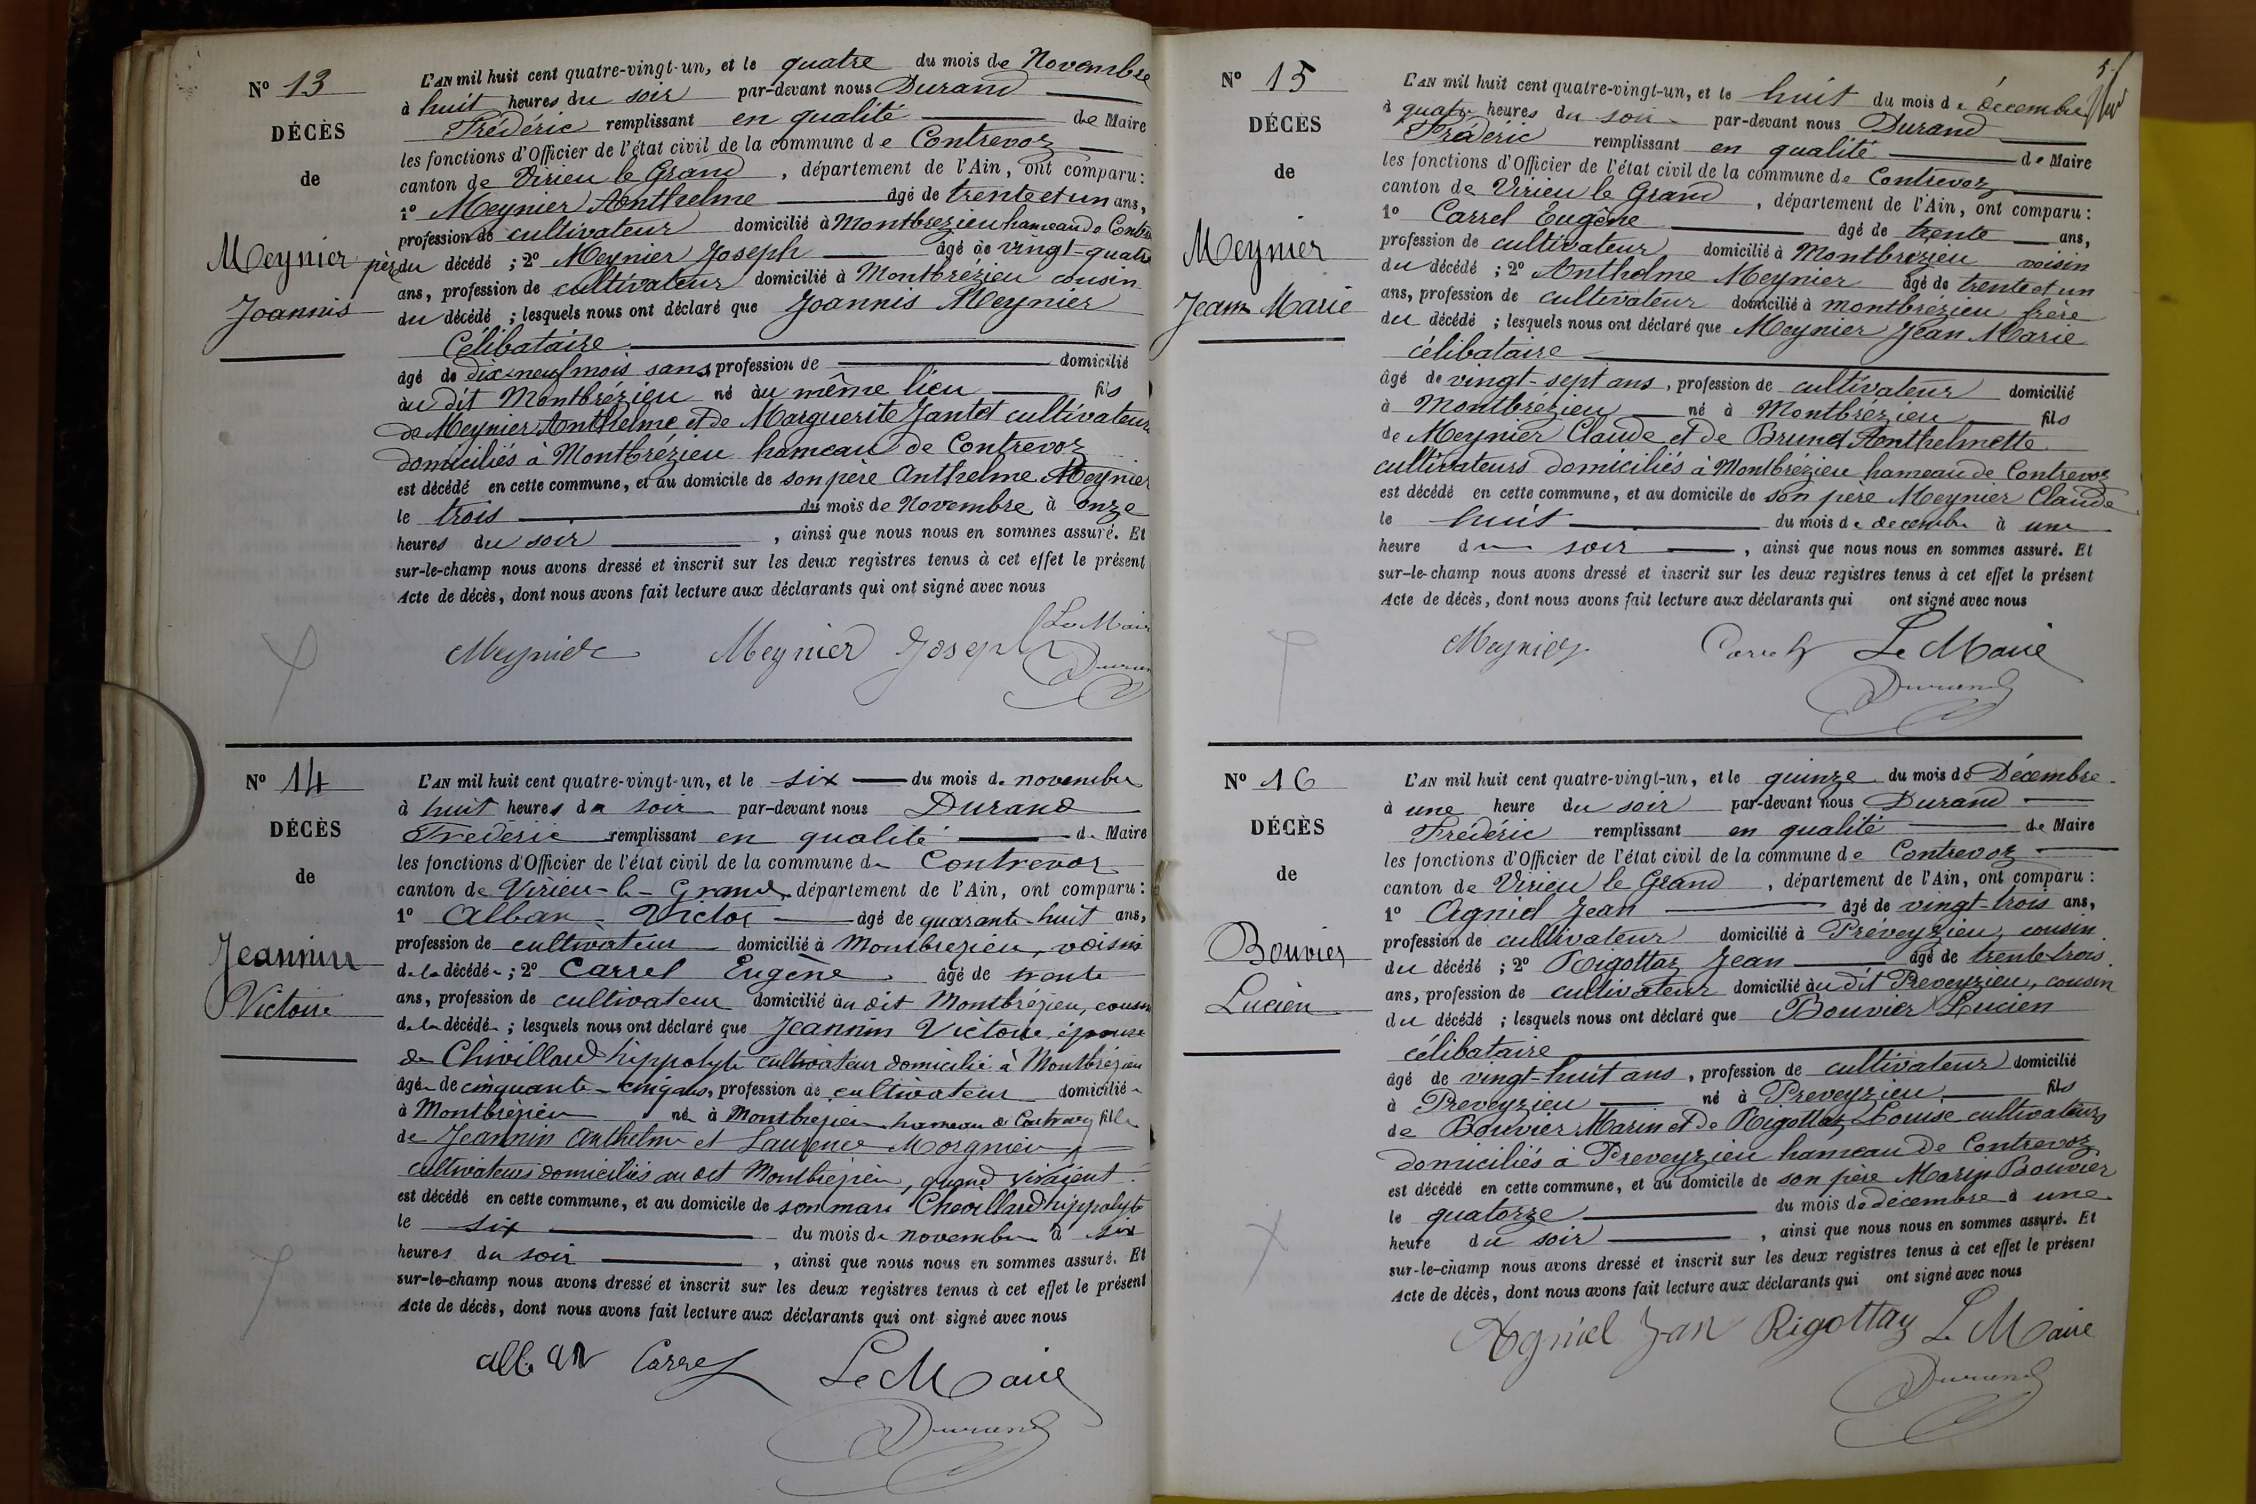 N° 13
DÉCÈS
de
Meynier
Joannis
L'AN mil huit cent quatre-vingt-un, et le quatre du mois de Novembre
à huit heures du soir par-devant nous Durand
Frédéric remplissant en qualité de Maire
les fonctions d'Officier de l'état civil de la commune de Contrevoz
canton de Virieu le Grand, département de l'Ain, ont comparu :
1° Meynier Anthelme âgé de trente et un ans,
profession de cultivateur domicilié à Montbrezieu hameau de Contre
père du décédé ; 2° Meynier Joseph âgé de vingt-quatre
ans, profession de cultivateur domicilié à Montbrézieu cousin
du décédé ; lesquels nous ont déclaré que Joannis Meynier
Célibataire
âgé de dix neuf mois sans profession de domicilié
au dit Montbrézieu né au même lieu fils
de Meynier Anthelme et de Marguerite Jantet cultivateurs
domiciliés à Montbrézieu hameau de Contrevoz
est décédé en cette commune, et au domicile de son père Anthelme Meynier
le trois du mois de Novembre à onze
heures du soir, ainsi que nous nous en sommes assuré. Et
sur-le-champ nous avons dressé et inscrit sur les deux registres tenus à cet effet le présent
Acte de décès, dont nous avons fait lecture aux déclarants qui ont signé avec nous
Le Maire
Meynier Meynier Joseph
Durand
N° 14
DÉCÈS
de
Jeannin
Victoire
L'AN mil huit cent quatre-vingt-un, et le six du mois de novembre
à huit heures du soir par-devant nous Durand
Frédéric remplissant en qualité de Maire
les fonctions d'Officier de l'état civil de la commune de Contrevoz
canton de Virieu-le-Grand, département de l'Ain, ont comparu :
1° Alban Victor âgé de quarante-huit ans,
profession de cultivateur domicilié à Montbrezieu, voisin
de la décédée ; 2° Carrel Eugène âgé de trente
ans, profession de cultivateur domicilié au dit Montbrézieu, cousin
de la décédée ; lesquels nous ont déclaré que Jeannin Victoire épouse
de Chivillard hippolyte cultivateur domicilié à Montbrézieu
âgée de cinquante-cinq ans, profession de cultivateur domiciliée
à Montbrézieu née à Montbrezieu hameau de Contrevoz fille
de Jeannin Anthelme et Laurence Morgnieu
cultivateurs domiciliés au dit Montbrézieu, quand vivaient
est décédé en cette commune, et au domicile de son mari Chevillard hippolyte
le six du mois de novembre à six
heures du soir, ainsi que nous nous en sommes assuré. Et
sur-le-champ nous avons dressé et inscrit sur les deux registres tenus à cet effet le présent
Acte de décès, dont nous avons fait lecture aux déclarants qui ont signé avec nous
alban Carrel Le Maire
Durand
N° 15
DÉCÈS
de
Meynier
Jean Marie
L'AN mil huit cent quatre-vingt-un, et le huit du mois de décembre
à quatre heures du soir par-devant nous Durand
Frédéric remplissant en qualité de Maire
les fonctions d'Officier de l'état civil de la commune de Contrevoz
canton de Virieu le Grand, département de l'Ain, ont comparu :
1° Carrel Eugène âgé de trente ans,
profession de cultivateur domicilié à Montbrezieu voisin
du décédé ; 2° Anthelme Meynier âgé de trente et un
ans, profession de cultivateur domicilié à montbrézieu frère
du décédé ; lesquels nous ont déclaré que Meynier Jean Marie
célibataire
âgé de vingt-sept ans, profession de cultivateur domicilié
à Montbrézieu né à Montbrézieu fils
de Meynier Claude et de Brunet Anthelmette
cultivateurs domiciliés à Montbrézieu hameau de Contrevoz
est décédé en cette commune, et au domicile de son père Meynier Claude
le huit du mois de decembre à une
heure du soir, ainsi que nous nous en sommes assuré. Et
sur-le-champ nous avons dressé et inscrit sur les deux registres tenus à cet effet le présent
Acte de décès, dont nous avons fait lecture aux déclarants qui ont signé avec nous
Meynier Carrel Le Maire
Durand
N° 16
DÉCÈS
de
Bouvier
Lucien
L'AN mil huit cent quatre-vingt-un, et le quinze du mois de Décembre
à une heure du soir par-devant nous Durand
Frédéric remplissant en qualité de Maire
les fonctions d'Officier de l'état civil de la commune de Contrevoz
canton de Virieu le Grand, département de l'Ain, ont comparu :
1° Agniel Jean âgé de vingt-trois ans,
profession de cultivateur domicilié à Preveyzieu, cousin
du décédé ; 2° Rigottaz Jean âgé de trente-trois
ans, profession de cultivateur domicilié au dit Preveyzieu, cousin
du décédé ; lesquels nous ont déclaré que Bouvier Lucien
célibataire
âgé de vingt-huit ans, profession de cultivateur domicilié
à Preveyzieu né à Preveyzieu fils
de Bouvier Marin et de Rigottaz Louise cultivateurs
domiciliés à Preveyzieu hameau de Contrevoz
est décédé en cette commune, et au domicile de son père Marin Bouvier
le quatorze du mois de décembre à une
heure du soir, ainsi que nous nous en sommes assuré. Et
sur-le-champ nous avons dressé et inscrit sur les deux registres tenus à cet effet le présent
Acte de décès, dont nous avons fait lecture aux déclarants qui ont signé avec nous
Agniel Jean Rigottaz Le Maire
Durand